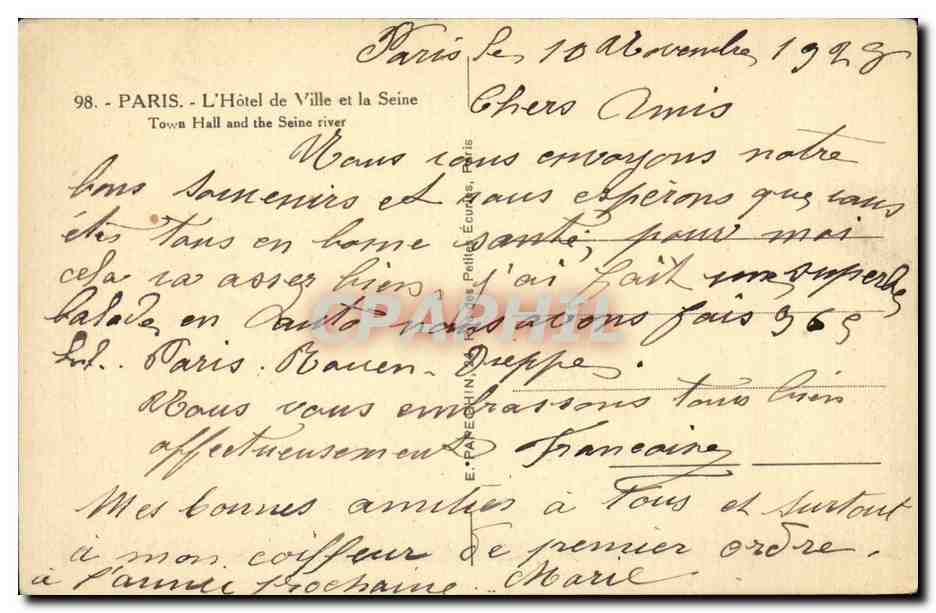 Paris le 10 Novembre 1928
98. - PARIS. - L'Hôtel de Ville et la Seine
Town Hall and the Seine river
Chers Amis
Nous vous envoyons notre
bons souvenirs et nous espérons que vous
étes tous en bonne santé, pour moi
cela va asser bien, j'ai fait une superbe
balade en auto nous avons fais 365
Paris. Rouen. Dieppe.
Nous vous embrassons tous bien
affectueusement Francoise
Mes bonnes amitiés à Tous et surtout
à mon coiffeur de premier ordre.
à l'année prochaine. Marie
E. PAPEGHIN, Rue des Petites Écuries, Paris
CPAPHIL